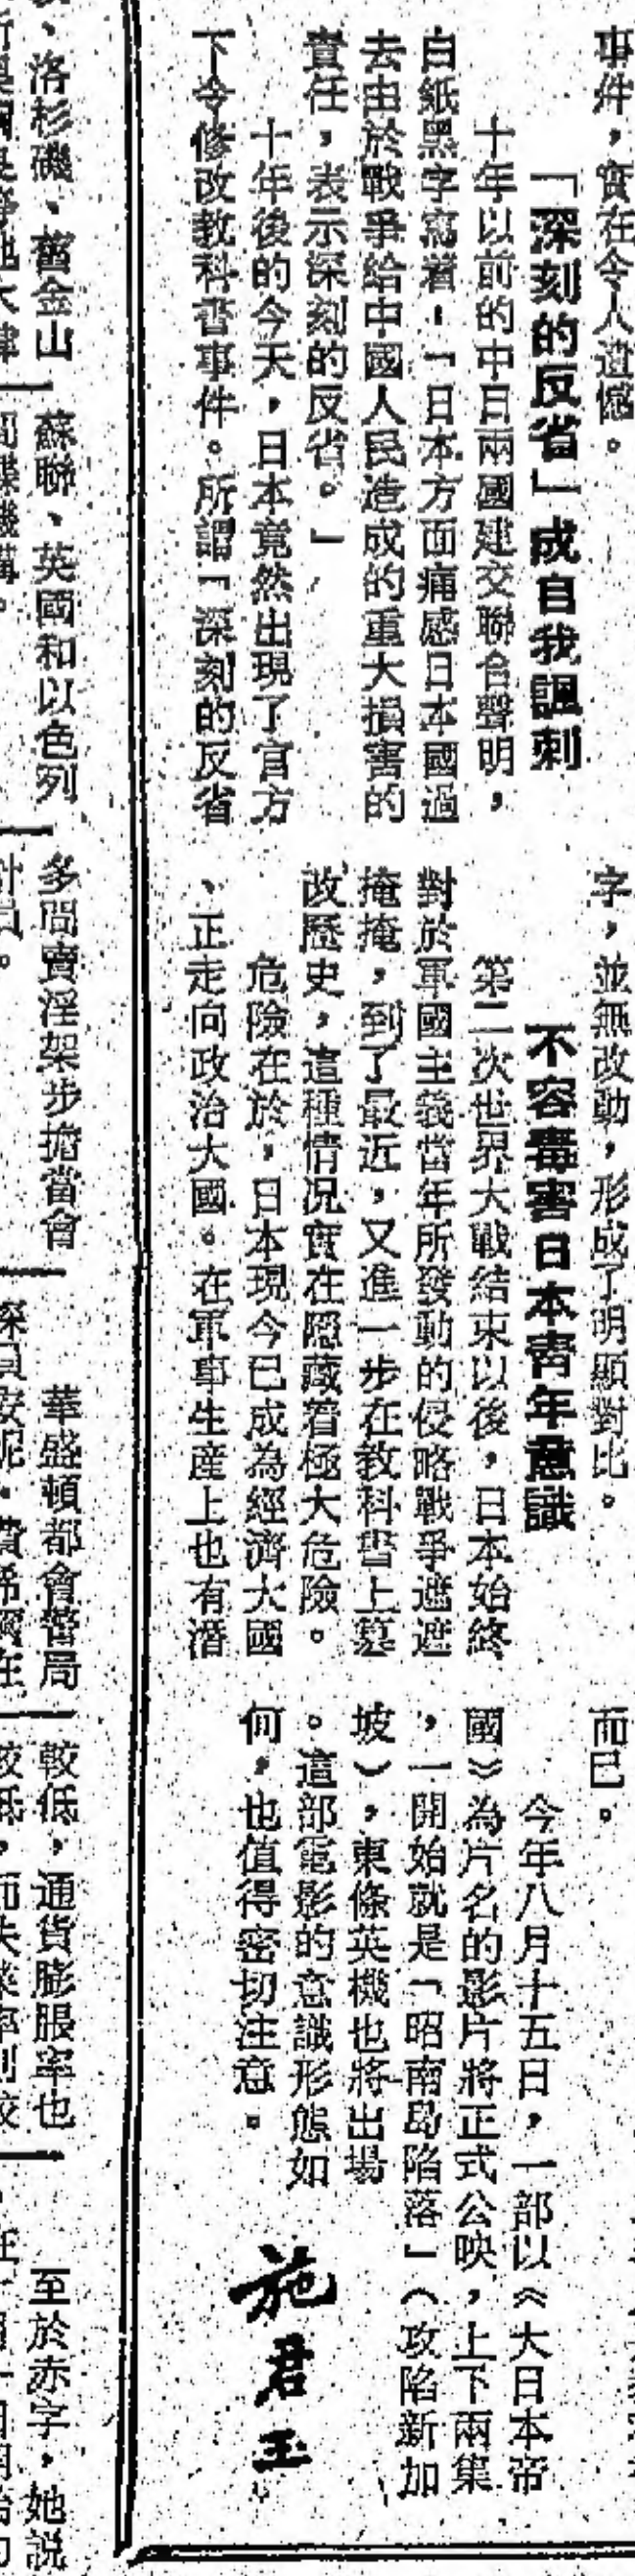 事件，實在令人遺憾。
「深刻的反省」成自我諷刺
十年以前的中日兩國建交聯合聲明，
白紙黑字寫着：「日本方面痛感日本國過
去由於戰爭給中國人民造成的重大損害的
責任，表示深刻的反省。」
十年後的今天，日本竟然出現了官方
下令修改教科書事件。所謂「深刻的反省
字，並無改動，形成了明顯對比。
不容毒害日本青年意識
第二次世界大戰結束以後，日本始終
對於軍國主義當年所發動的侵略戰爭遮遮
掩掩，到了最近，又進一步在教科書上篡
改歷史，這種情况實在隱藏着極大危險。
危險在於，日本現今已成為經濟大國
、正走向政治大國。在軍事生産上也有潛
而已。
今年八月十五日，一部以《大日本帝
國》為片名的影片將正式公映，上下兩集
，一開始就是「昭南島陷落」（攻陷新加
坡），東條英機也將出場
。這部電影的意識形態如
何，也值得密切注意。
施君玉
、洛杉磯、舊金山
蘇聯、英國和以色列
間諜機構。
多間賣淫架步擔當會
計員。
華盛頓都會警局
較低，通貨膨脹率也
較低，而失業率則較
至於赤字，她説